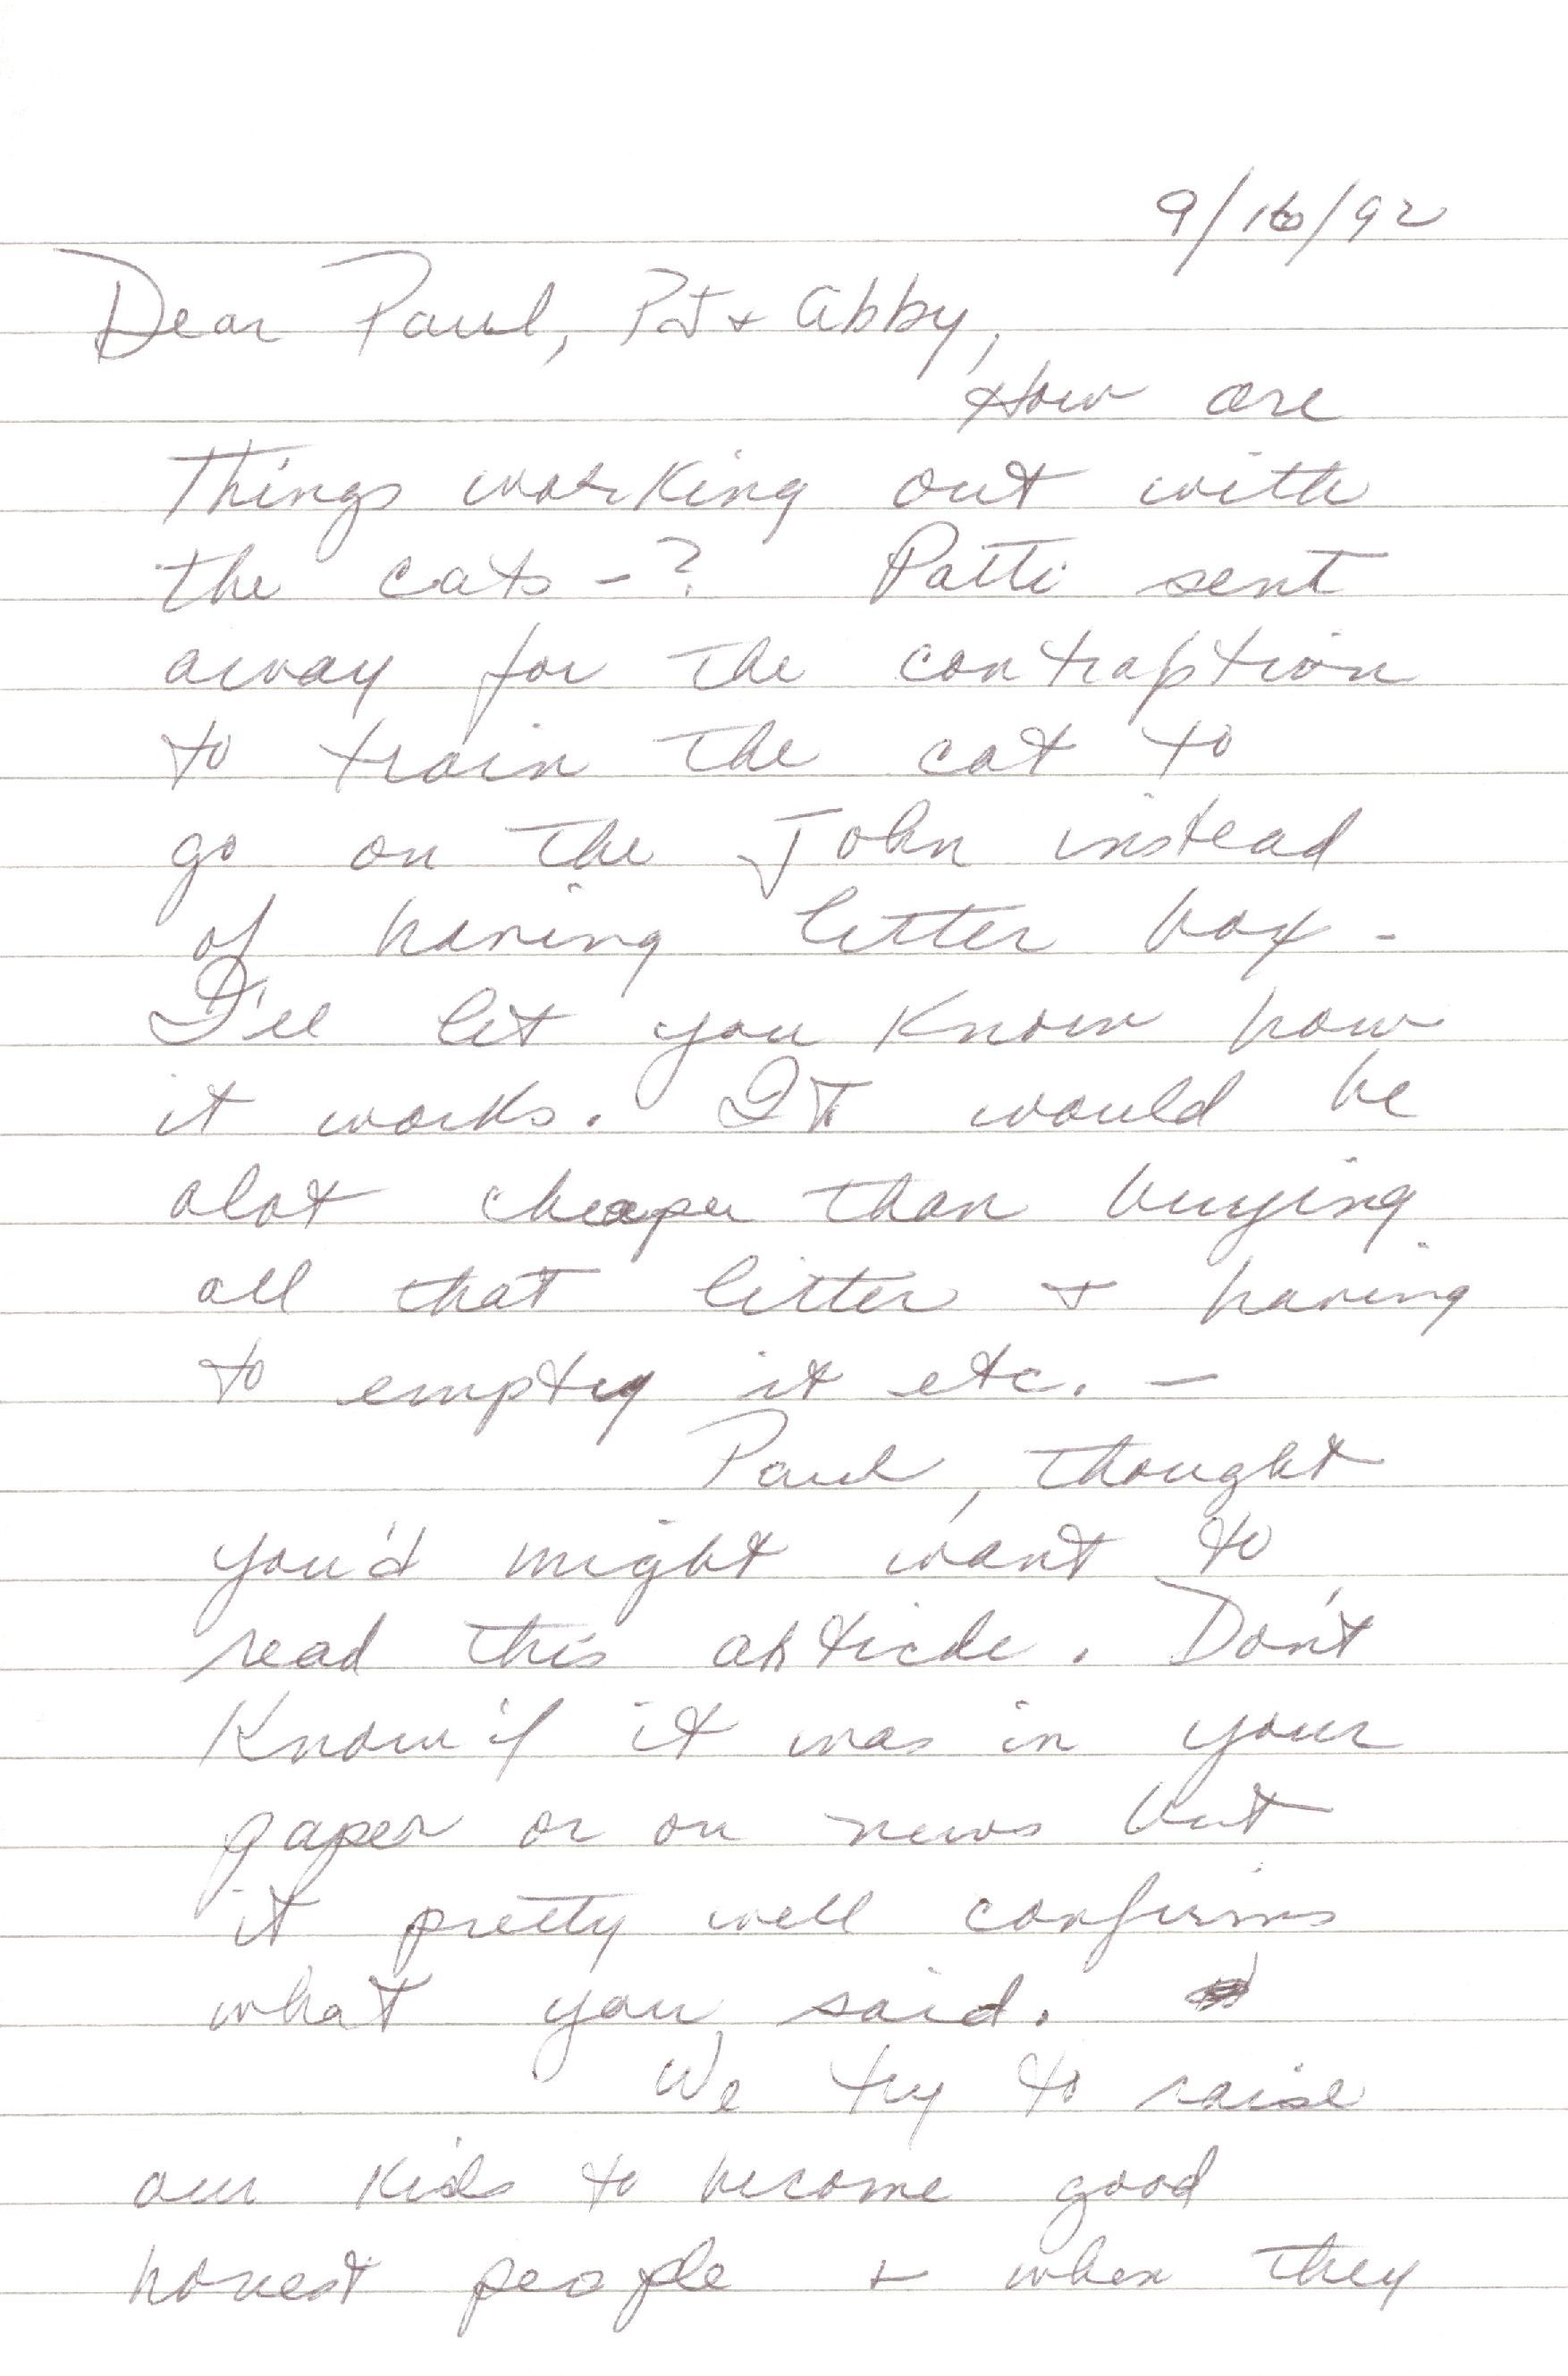 9/16/92
Dear Paul, PJ + Abby,
How are
things working out with
the cats - ? Patti sent
away for the contraption
to train the cat to
go on the John instead
of having litter box -
I'll let you know how
it works. It would be
alot cheaper than buying
all that litter + having
to empty it etc. -
Paul, thought
you'd might want to
read this article. Don't
know if it was in your
paper or on news but
it pretty well confirms
what you said.
We try to raise
our kids to become good
honest people + when they